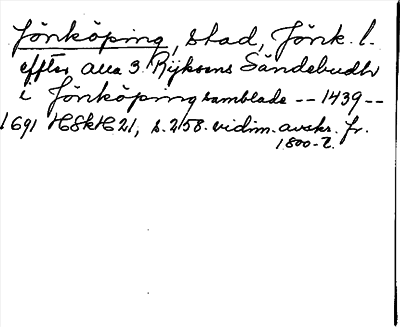 Jönköping, stad, Jönk. l.
effter alla 3 Rijksens Sändebudhr
i Jönköping samblade -- 1439 --
1691 HSkH 21, s. 258. vidim. avskr. fr.
1800-t.